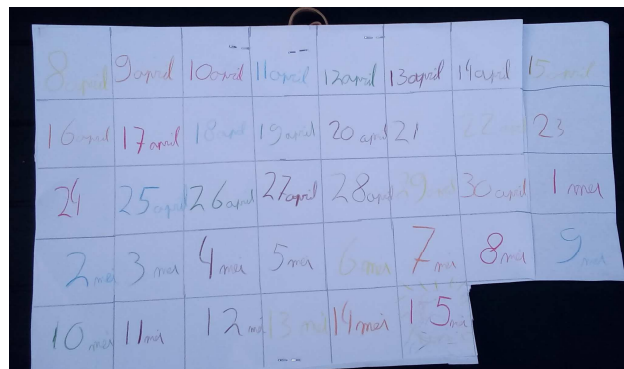 8 april 9 april 10 april 11 april 12 april 13 april 14 april 15 april
16 april 17 april 18 april 19 april 20 april 21 22 23
24 25 april 26 april 27 april 28 april 29 30 april 1 mei
2 mei 3 mei 4 mei 5 mei 6 mei 7 mei 8 mei 9 mei
10 mei 11 mei 12 mei 13 mei 14 mei 15 mei